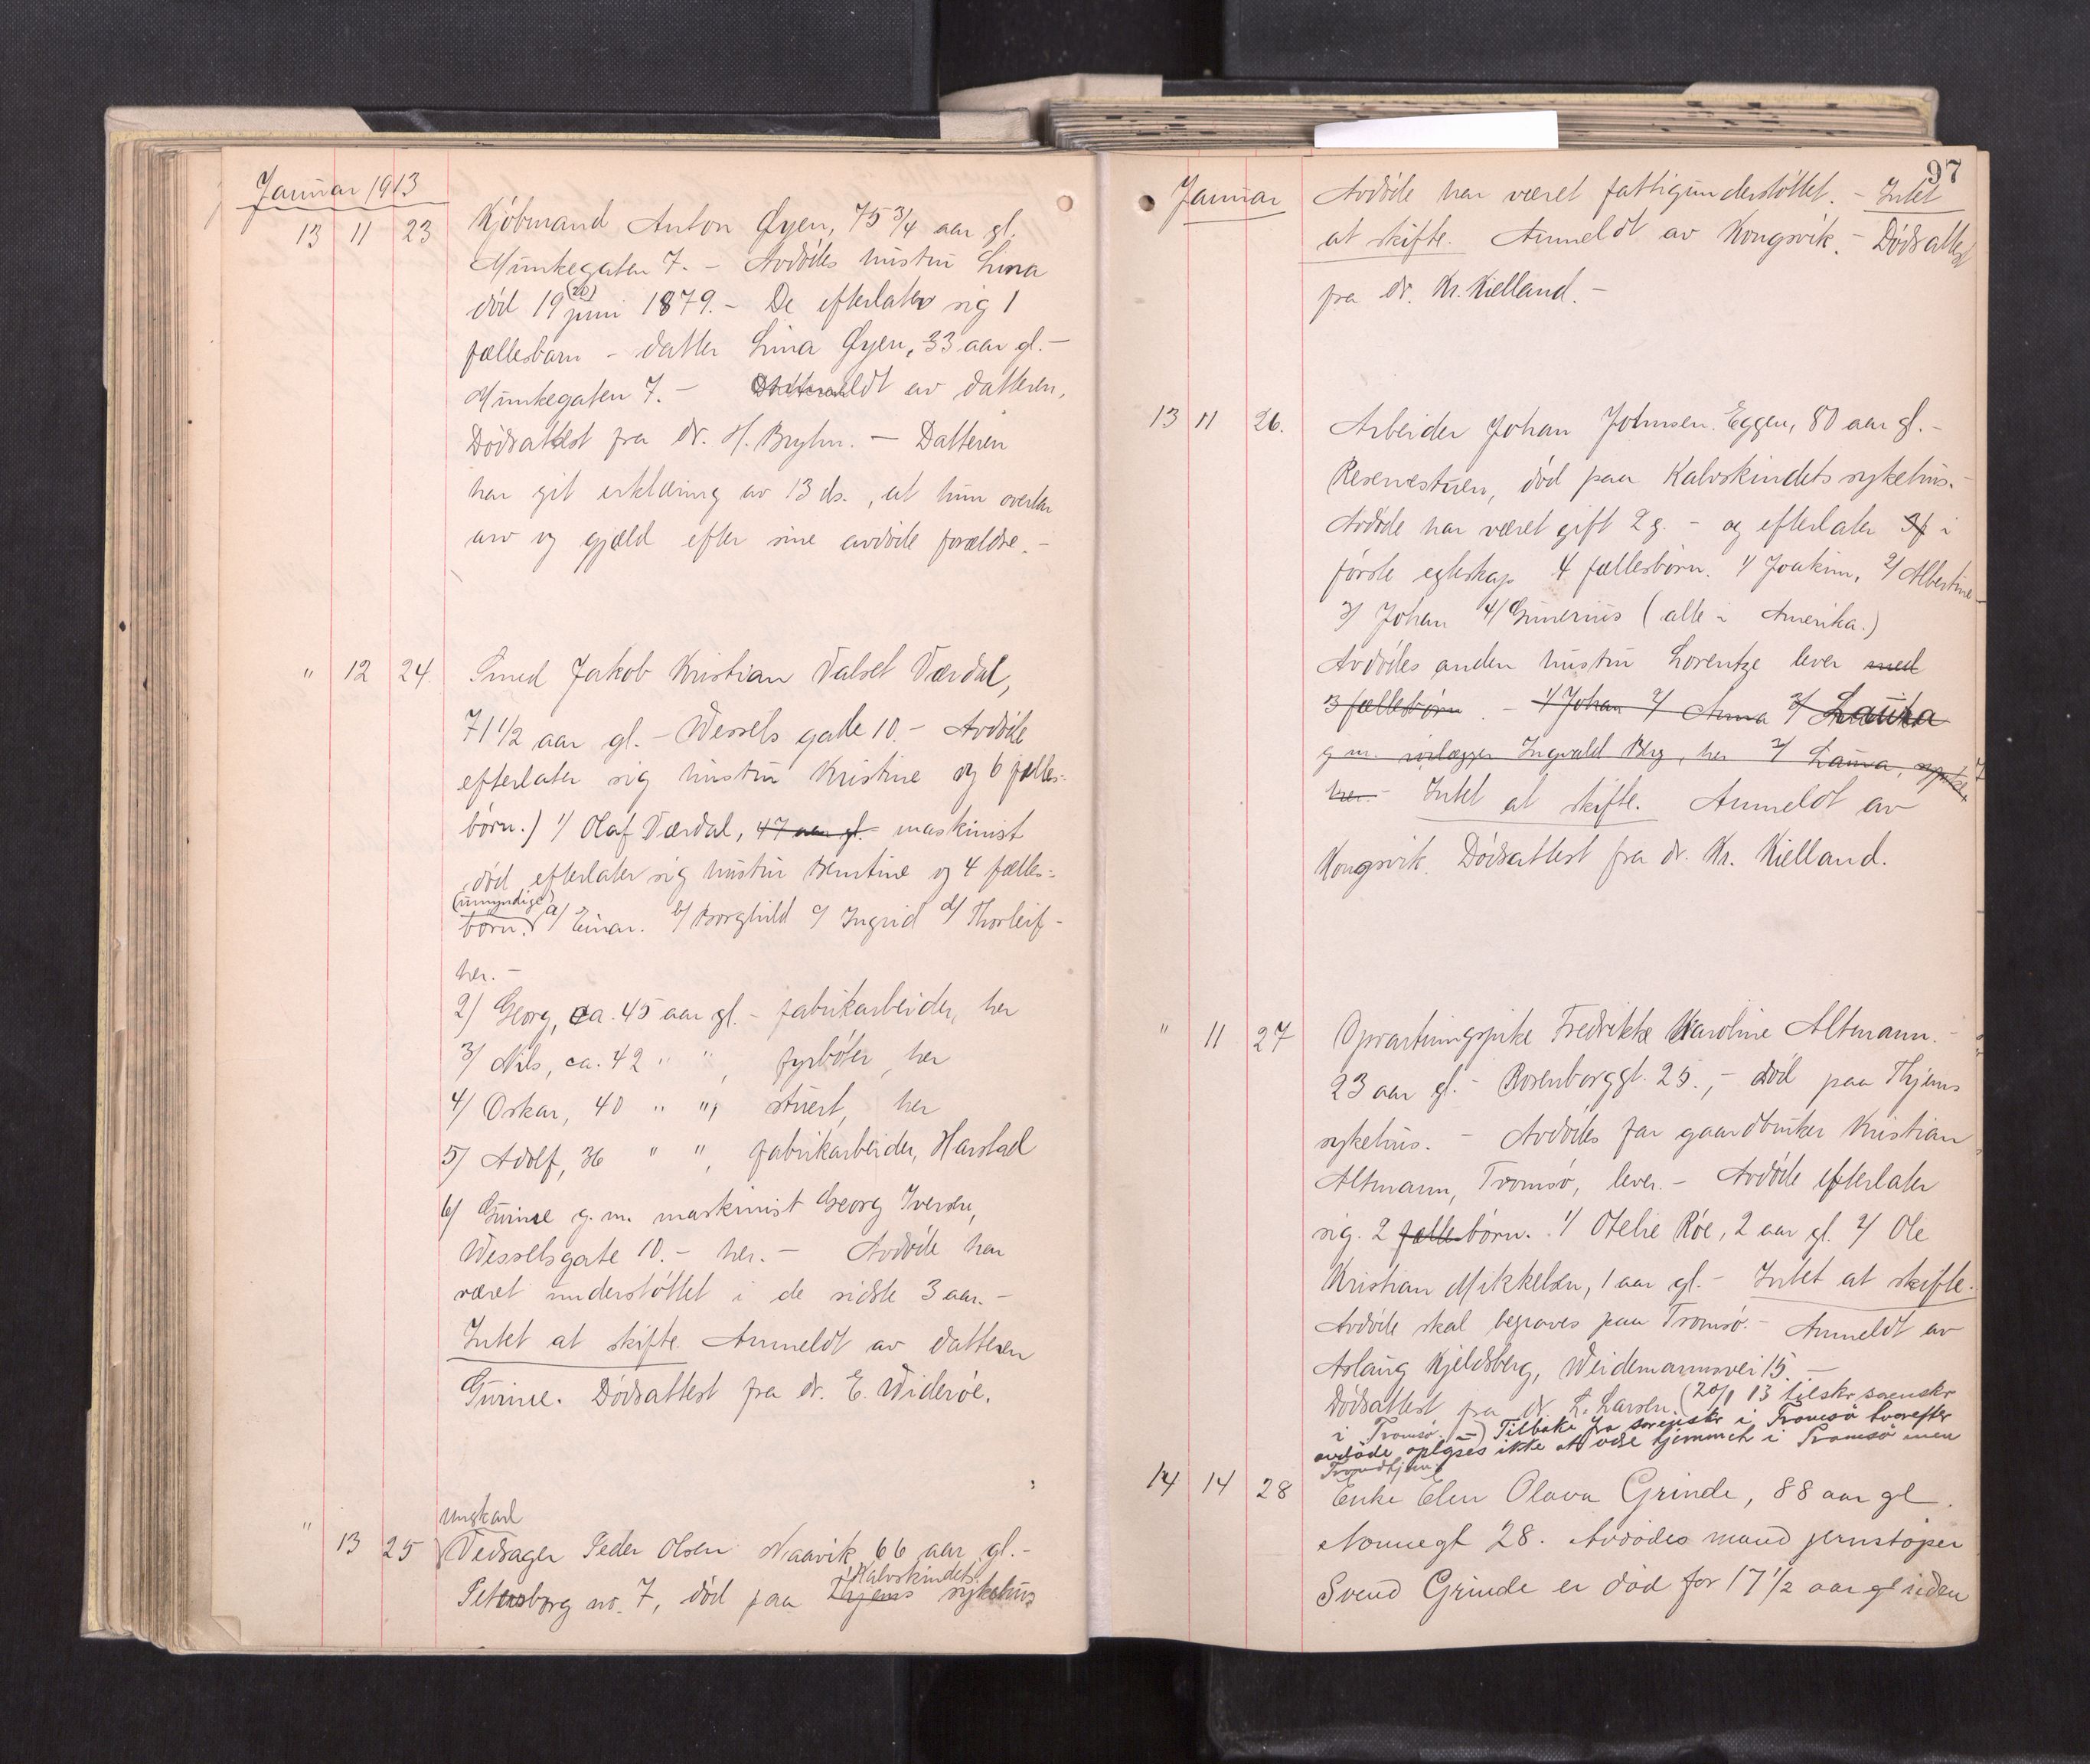 Januar 1913
13 11 23 Kjöbmand Anton Øyen, 75 3/4 aar gl.
Munkegaten 7. - Avdödes hustru Lina
död 19 (20) juni 1879. - De efterlater sig 1
fællesbarn - datter Lina Øyen, 33 aar gl. -
Munkegaten 7. - Anmeldt av datteren,
Dödsattest fra dr. H. Bryhn. - Datteren
har git erklæring av 13 ds., at hun overtar
arv og gjæld efter sine avdöde forældre. -
" 12 24. Smed Jakob Kristian Valset Værdal,
71 1/2 aar gl. - Wessels gate 10. - Avdöde
efterlater sig hustru Kristine og 6 fælles-
börn.) 1/ Olaf Værdal, 47 aar gl. - maskinist
död efterlater sig hustru Berntine og 4 fælles-
(umyndige)
börn. a/ Einar. b/ Borghild c/ Ingrid d/ Thorleif -
her. -
2) Georg, ca. 45 aar gl. - fabrikarbeider, her
3/ Nils, ca. 42 " ", fyrböter, her
4/ Oskar, 40 " ", stuert, her
5) Adolf, 36 " ", fabrikarbeider, Harstad
6/ Gurine g. m. maskinist Georg Iversen,
Wesselsgate 10. - her. - Avdöde har
været understöttet i de sidste 3 aar. -
Intet at skifte. Anmeldt av datteren
Gurine. Dödsattest fra dr. E. Wideröe.
ungkarl
" 13 25 Vedsager Peder Olsen Naavik 66 aar gl. -
Kalvskindets
Petersborg no. 7, död paa Thjems sykehus
97
Januar Avdöde har været fattigunderstöttet. - Intet
at skifte. Anmeldt av Kongsvik. - Dödsattest
fra dr. Kr. Kielland. -
13 11 26. Arbeider Johan Johnsen Eggen, 80 aar gl. -
Reservestuen, död paa Kalvskindets sykehus. -
Avdöde har været gift 2 g. - og efterlater 3f i
förste egteskap 4 fællesbörn. 1/ Joakim, 2/ Albertine
3/ Johan 4/ Gunerius (alle i Amerika.)
Avdödes anden hustru Lorentze lever med
3 fællesbörn. - 1/ Johan 2/ Anna 3/ Laura
g m. rörlægger Ingvald Berg, her 3/ Laura,
her. - Intet at skifte. Anmeldt av
Kongsvik. Dödsattest fra dr. Kr. Kielland.
" 11 27 Opvartningspike Fredrikke Karoline Altmann. -
23 aar gl. - Rosenborggt. 25., - död paa Thjems
sykehus. - Avdödes far gaardbruker Kristian
Altmann, Tromsö, lever. - Avdöde efterlater
sig. 2 fællesbörn. 1/ Otelie Röe, 2 aar gl. 2/ Ole
Kristian Mikkelsen, 1 aar gl. - Intet at skifte.
Avdöde skal begraves paa Tromsö. - Anmeldt av
Aslaug Kjeldsberg, Weidemannsvei 15. -
Dödsattest fra dr. L. Larsen. (20/1 13 tilskr sorenskr
i Tromsö. -) Tilbake fra sorenskr i Tromsö hvorefter
avdöde oplyses ikke at være hjemmeh i Tromsö men
Trondhjem
14 14 28 Enke Elen Olava Grinde, 88 aar gl.
Nonnegt 28. Avdödes mand jernstöper
Svend Grinde er död for 17 1/2 aar gl uden